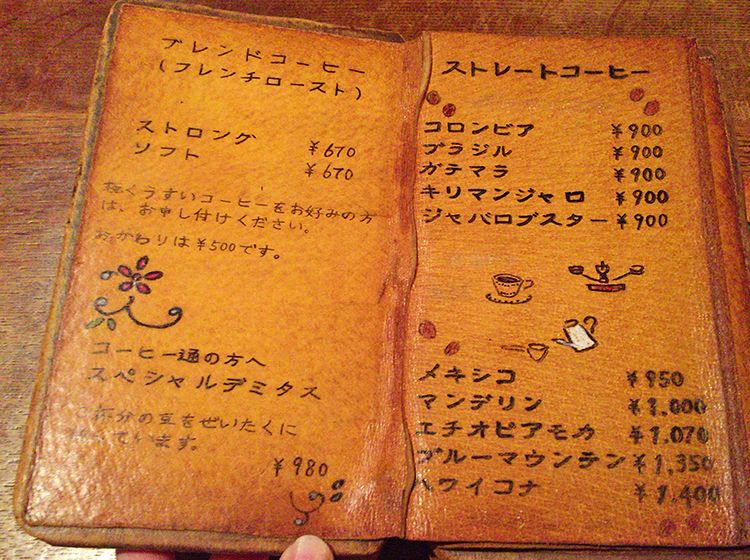 ブレンドコーヒー
(フレンチロースト)
ストロング ¥670
ソフト ¥670
極くうすいコーヒーをお好みの方
は、お申し付けください。
おかわりは¥500です。
コーヒー通の方へ
スペシャルデミタス
杯分の豆をぜいたくに
います。
¥980
ストレートコーヒー
コロンビア ¥900
ブラジル ¥900
ガテマラ ¥900
キリマンジャロ ¥900
ジャバロブスター ¥900
メキシコ ¥950
マンデリン ¥1.000
エチオピアモカ ¥1.070
ブルーマウンテン ¥1,350
ハワイコナ ¥1,400